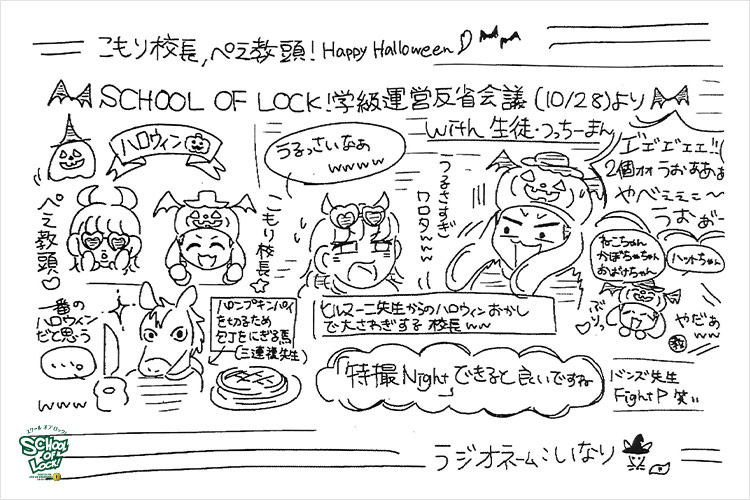 こもり校長,ぺえ教頭！Happy Halloween
SCHOOL OF LOCK！学級運営反省会議（10/28）より
with 生徒・つっちーまん
ハロウィン
ぺえ教頭
こもり校長☆
うるっさいなぁ
wwww
うるさすぎ
ワロタwww
2個ォォうおぁあぁ
やべぇぇこ〜
うおぉ-
ねこちゃん
かぼちゃちゃん
おばけちゃん
ハットちゃん
やだぁ
ww
教
一番の
ハロウィン
だと思う
…。
www
パンプキンパイ
を切るため
包丁をにぎる馬
（三連複先生）
ヒルズーニ先生からのハロウィンおかし
で大さわぎする校長ww
「特撮Night」できると良いですね
Fight P 笑
ラジオネーム：いなり
スクール オブ ロック！
SCHOOL
OF
LOCK!